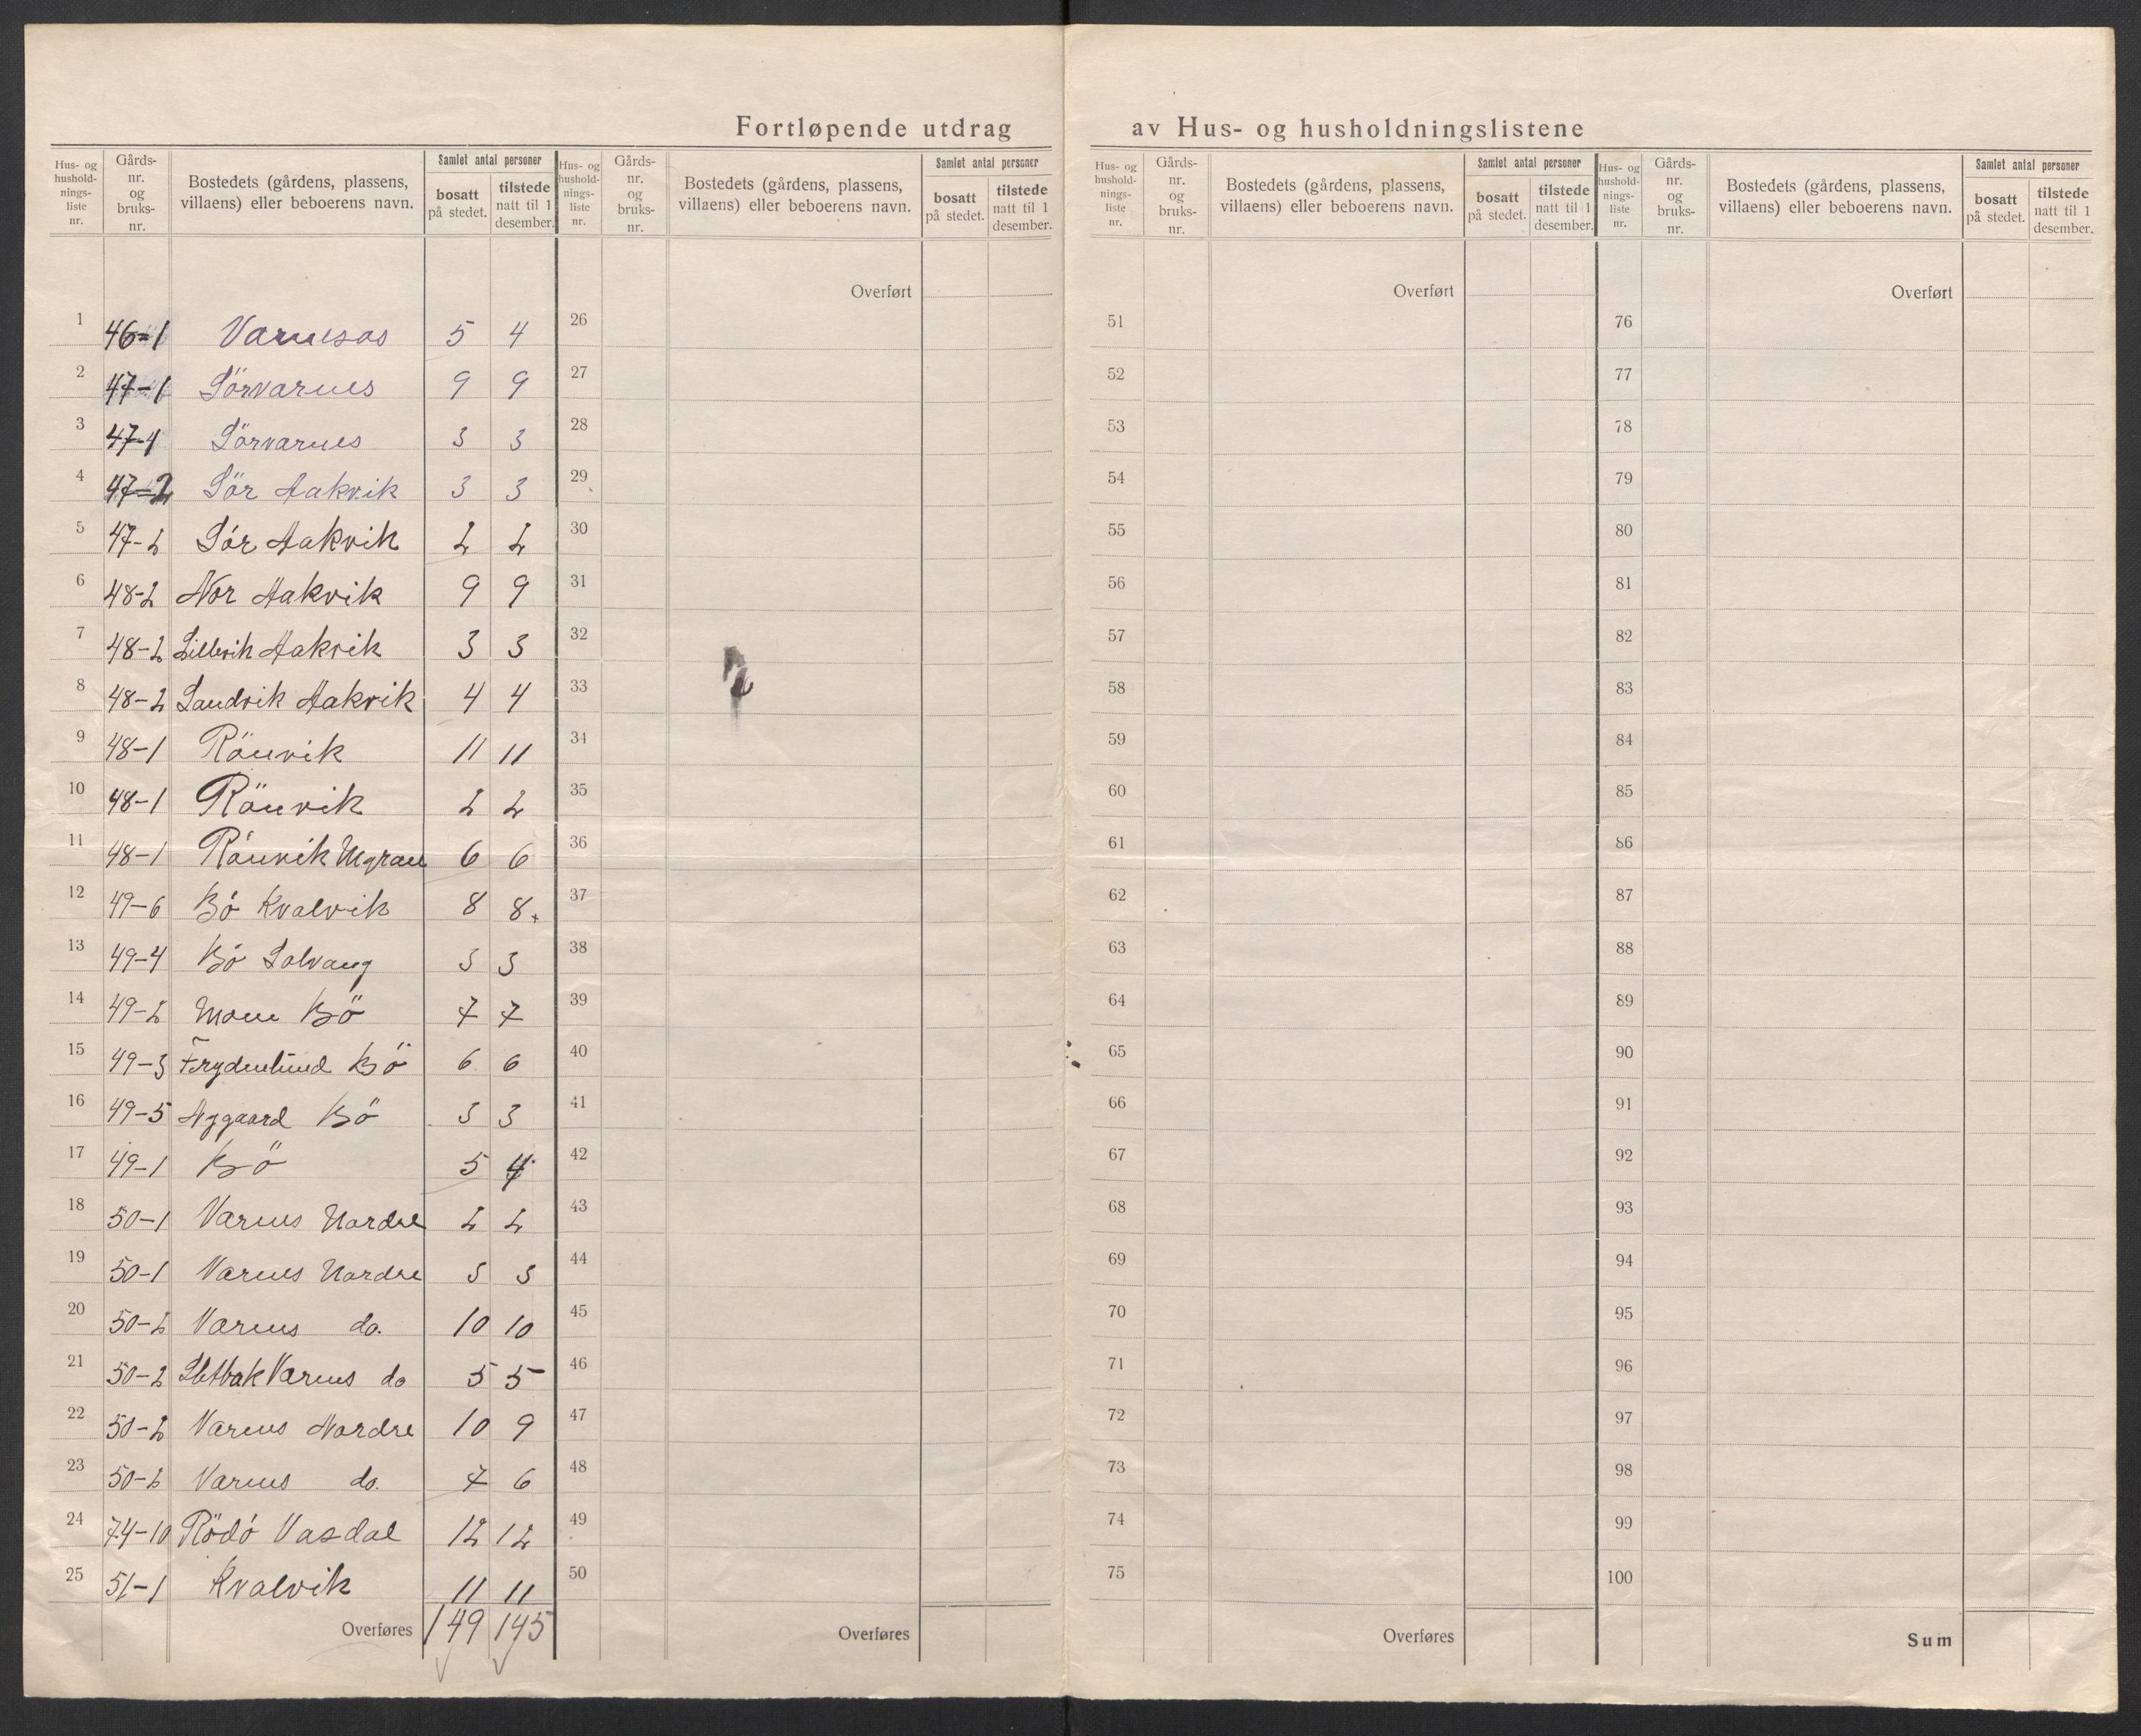 Fortløpende utdrag av Hus- og husholdningslistene
Hus- og hushold- nings- liste nr. Gårds- nr. og bruks- nr. Bostedets (gårdens, plassens, villaens) eller beboerens navn. Samlet antal personer bosatt på stedet. tilstede natt til 1 desember.
Hus- og hushold- nings- liste nr. Gårds- nr. og bruks- nr. Bostedets (gårdens, plassens, villaens) eller beboerens navn. Samlet antal personer bosatt på stedet. tilstede natt til 1 desember.
Hus- og hushold- nings- liste nr. Gårds- nr. og bruks- nr. Bostedets (gårdens, plassens, villaens) eller beboerens navn. Samlet antal personer bosatt på stedet. tilstede natt til 1 desember.
Hus- og hushold- nings- liste nr. Gårds- nr. og bruks- nr. Bostedets (gårdens, plassens, villaens) eller beboerens navn. Samlet antal personer bosatt på stedet. tilstede natt til 1 desember.
Overført Overført Overført
1 46-1 Varnesos 5 4 26 51 76
2 47-1 Sörvarnes 9 9 27 52 77
3 47-1 Sörvarnes 3 3 28 53 78
4 47-2 Sör Aakvik 3 3 29 54 79
5 47-2 Sör Aakvik 2 2 30 55 80
6 48-2 Nor Aakvik 9 9 31 56 81
7 48-2 Lillevik Aakvik 3 3 32 57 82
8 48-2 Sandvik Aakvik 4 4 33 58 83
9 48-1 Rönvik 11 11 34 59 84
10 48-1 Rönvik 2 2 35 60 85
11 48-1 Rönvik 6 6 36 61 86
12 49-6 Bö Kvalvik 8 8 37 62 87
13 49-4 Bö Solvang 3 3 38 63 88
14 49-2 Moen Bö 7 7 39 64 89
15 49-3 Frydenlund Bö 6 6 40 65 90
16 49-5 Nygaard Bö 3 3 41 66 91
17 49-1 Bö 5 4 42 67 92
18 50-1 Varnes Nordre 2 2 43 68 93
19 50-1 Varnes Nordre 3 3 44 69 94
20 50-2 Varnes do. 10 10 45 70 95
21 50-2 Sletbak Varnes do 5 5 46 71 96
22 50-2 Varnes Nordre 10 9 47 72 97
23 50-2 Varnes do. 7 6 48 73 98
24 74-10 Rödö Vasdal 12 12 49 74 99
25 51-1 Kvalvik 11 11 50 75 100
Overføres 149 145 Overføres Overføres Sum